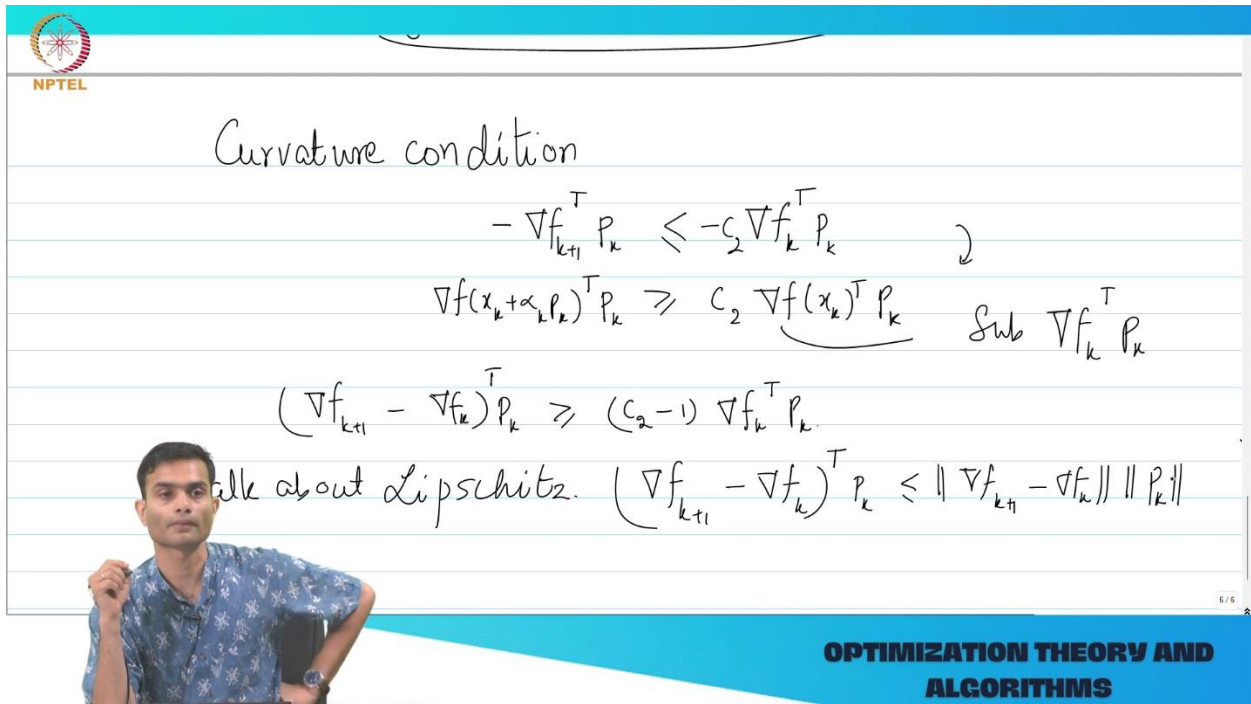 NPTEL
Curvature condition
- ∇f_{k+1}^T P_k ≤ -c_2 ∇f_k^T P_k
∇f(x_k+α_k P_k)^T P_k ≥ c_2 ∇f(x_k)^T P_k
Sub ∇f_k^T P_k
(∇f_{k+1} - ∇f_k)^T P_k ≥ (c_2-1) ∇f_k^T P_k.
alk about Lipschitz. (∇f_{k+1} - ∇f_k)^T P_k ≤ ‖∇f_{k+1} - ∇f_k‖ ‖P_k‖
6/6
OPTIMIZATION THEORY AND
ALGORITHMS